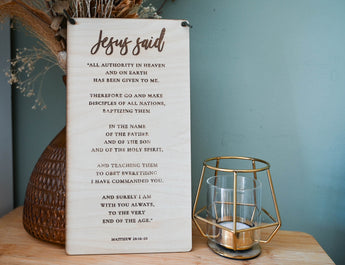 Jesus said
"ALL AUTHORITY IN HEAVEN
AND ON EARTH
HAS BEEN GIVEN TO ME.
THEREFORE GO AND MAKE
DISCIPLES OF ALL NATIONS,
BAPTIZING THEM
IN THE NAME
OF THE FATHER
AND OF THE SON
AND OF THE HOLY SPIRIT,
AND TEACHING THEM
TO OBEY EVERYTHING
I HAVE COMMANDED YOU.
AND SURELY I AM
WITH YOU ALWAYS,
TO THE VERY
END OF THE AGE."
MATTHEW 28:18-20